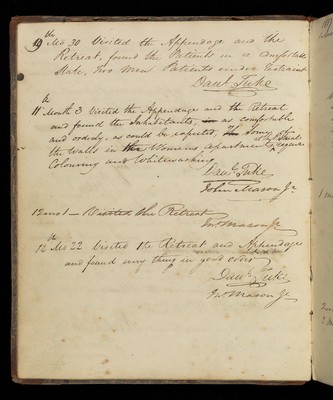 9th Mo 30 Visited the Appendage and the
Retreat, found the Patients in a comfortable
State, two Men Patients under restraint
Danl Tuke
11th Month 3 Visited the Appendage and the Retreat
and found the Inhabitants as comfortable
and orderly as could be expected, Some of
the Walls in the Womens apartments require
Colouring and Whitewashing
Danl Tuke
John Mason Jr
12 mo 1 - Visited the Retreat
Jno Mason Jr
12th Mo 22 Visited the Retreat and Appendage
and found every thing in good order
Danl Tuke
Jno Mason Jr